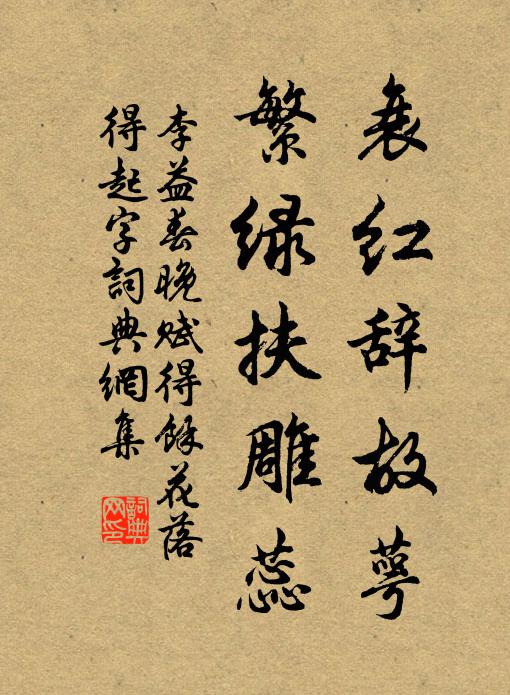 衰红辞故萼
繁绿扶雕蕊
李益春晚赋得馀花落
得起字詞典網集
詞典网印